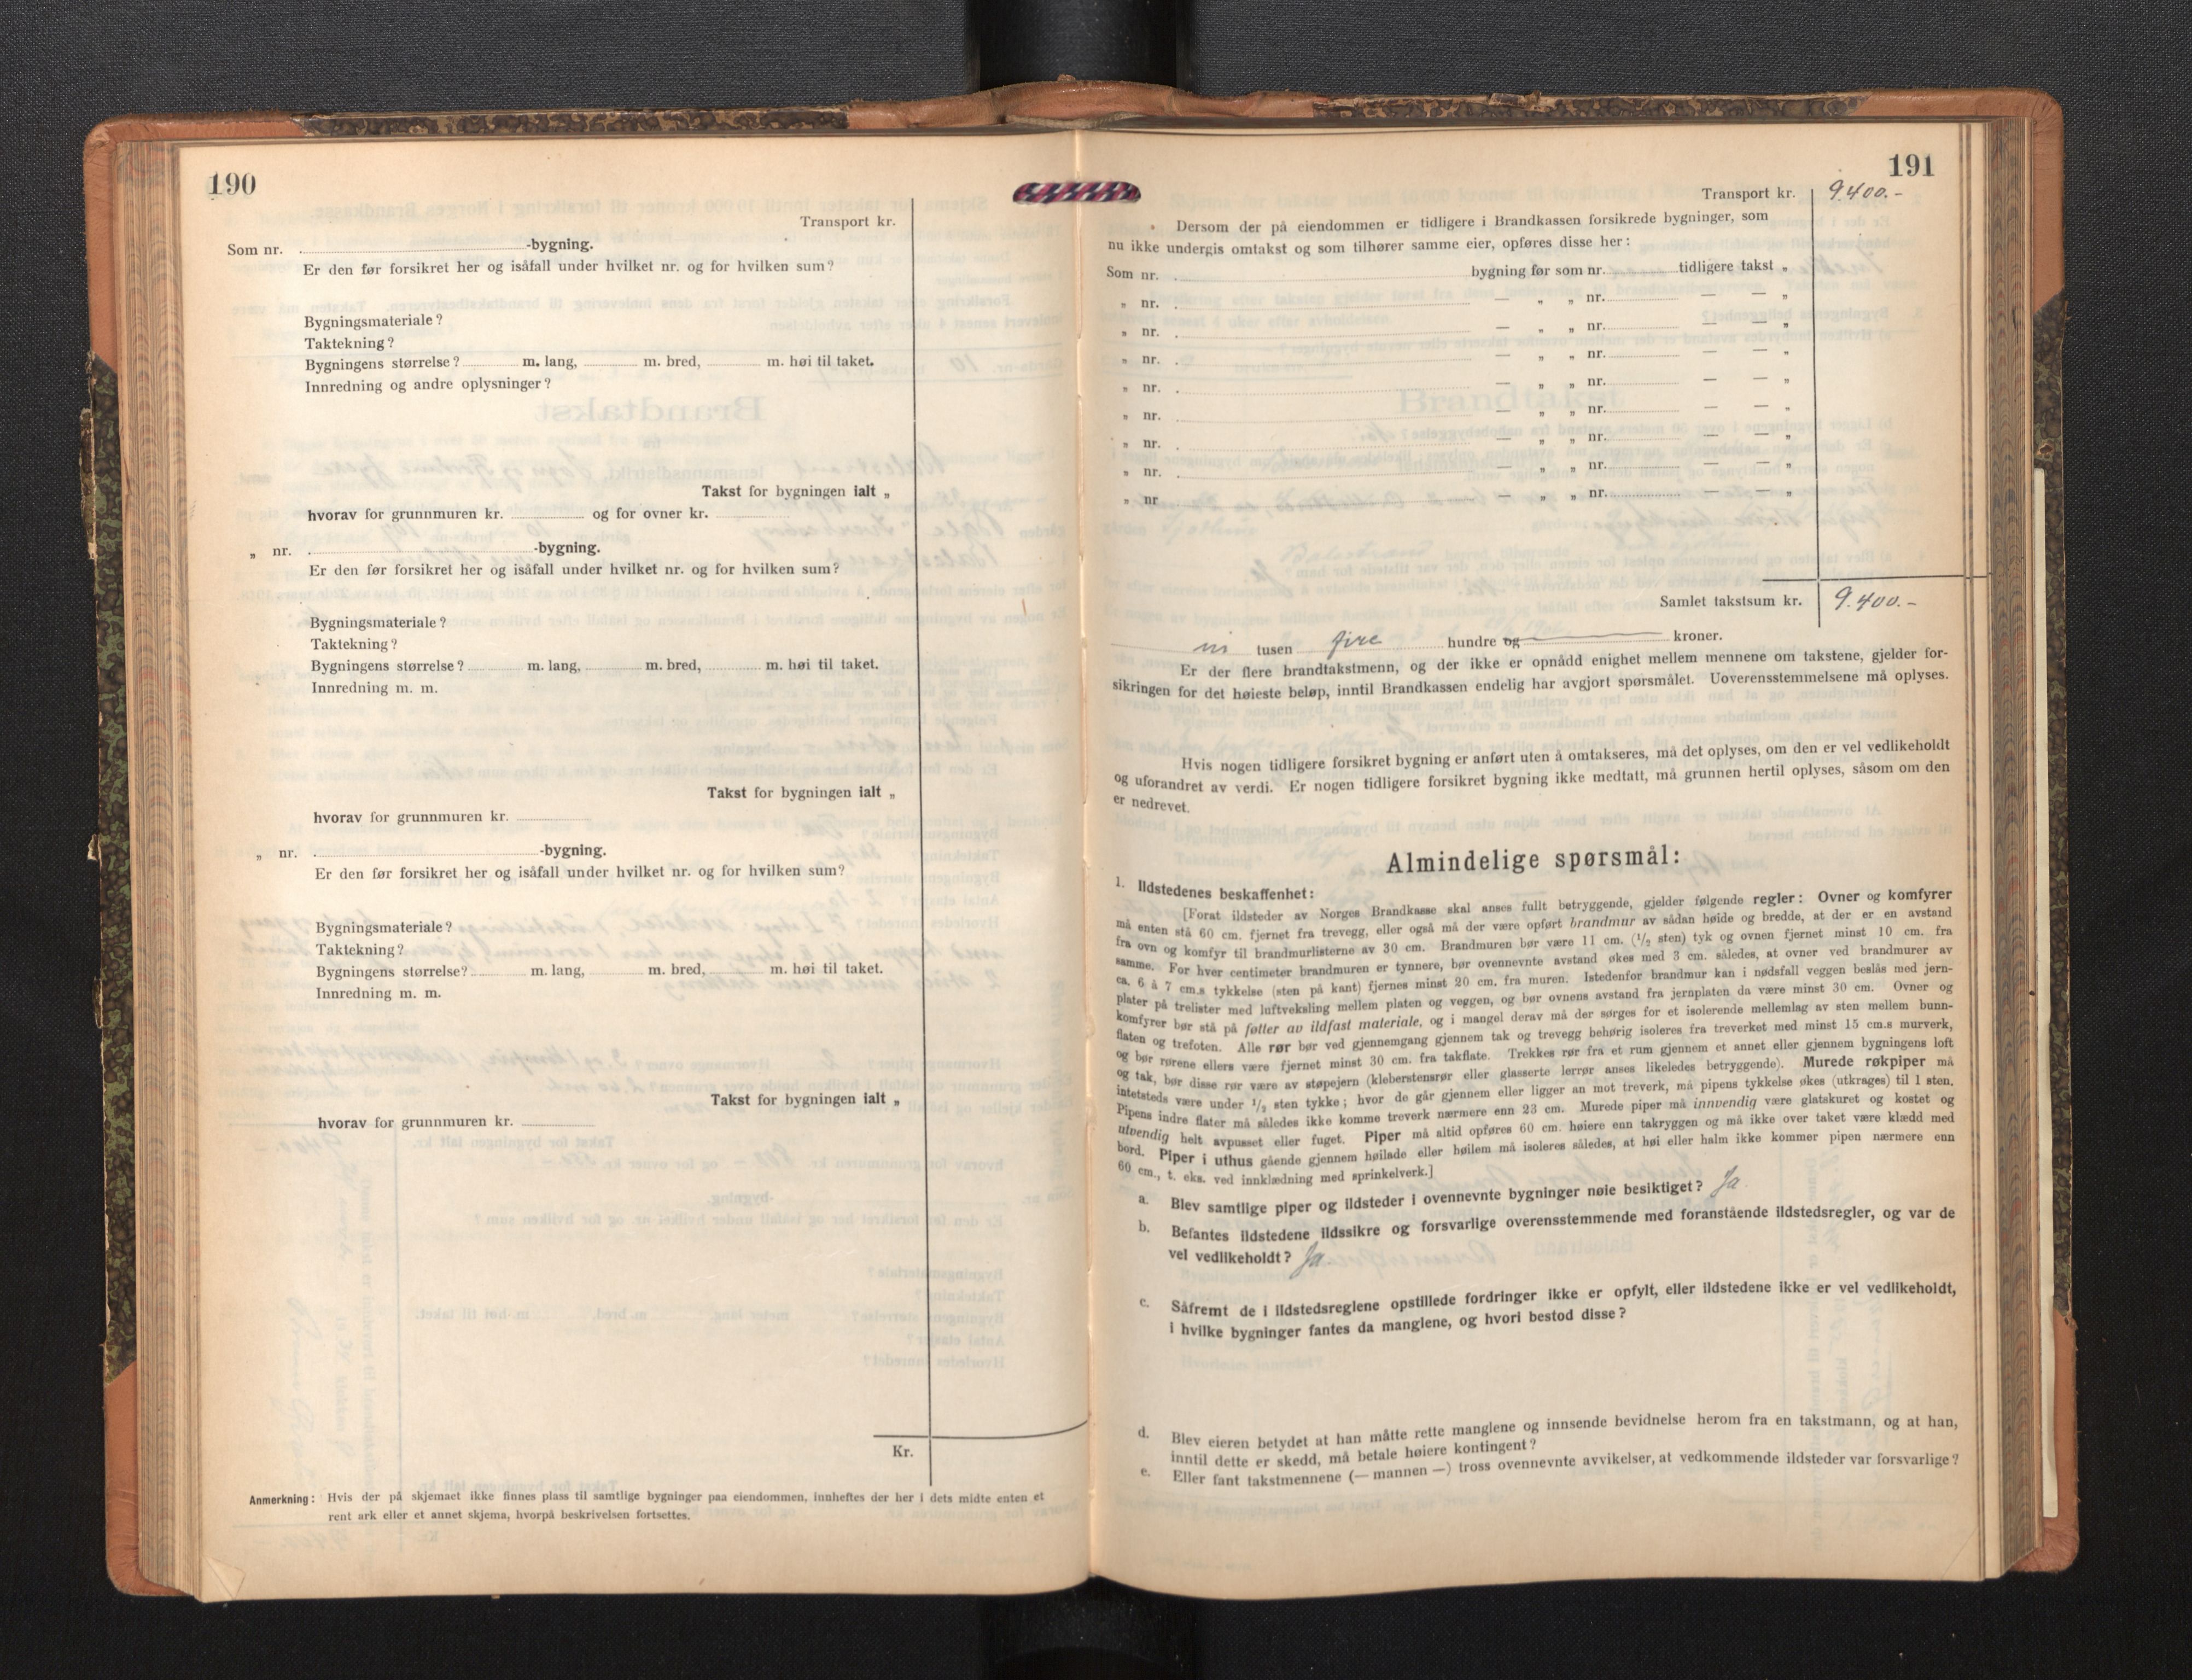 190
Transport kr.
Som nr. -bygning.
Er den før forsikret her og isåfall under hvilket nr. og for hvilken sum?
Bygningsmateriale?
Taktekning?
Bygningens størrelse? m. lang, m. bred, m. høi til taket.
Innredning og andre oplysninger?
Takst for bygningen ialt „
hvorav for grunnmuren kr. og for ovner kr.
„ nr. -bygning.
Er den før forsikret her og isåfall under hvilket nr. og for hvilken sum?
Bygningsmateriale?
Taktekning?
Bygningens størrelse? m. lang, m. bred, m. høi til taket.
Innredning m. m.
Takst for bygningen ialt „
hvorav for grunnmuren kr.
„ nr. -bygning.
Er den før forsikret her og isåfall under hvilket nr. og for hvilken sum?
Bygningsmateriale?
Taktekning?
Bygningens størrelse? m. lang, m. bred, m. høi til taket.
Innredning m. m.
Takst for bygningen ialt „
hvorav for grunnmuren kr.
Kr.
Anmerkning: Hvis der på skjemaet ikke finnes plass til samtlige bygninger paa eiendommen, innheftes der her i dets midte enten et
rent ark eller et annet skjema, hvorpå beskrivelsen fortsettes.
191
Transport kr. 9.400.-
Dersom der på eiendommen er tidligere i Brandkassen forsikrede bygninger, som
nu ikke undergis omtakst og som tilhører samme eier, opføres disse her:
Som nr. bygning før som nr. tidligere takst „
„ nr. — „ „ nr. — — „
„ nr. — „ „ nr. — — „
„ nr. — „ „ nr. — — „
„ nr. — „ „ nr. — — „
„ nr. — „ „ nr. — — „
„ nr. — „ „ nr. — — „
„ nr. — „ „ nr. — — „
„ nr — „ „ nr. — — „
Samlet takstsum kr. 9.400.-
ni tusen fire hundre og kroner.
Er der flere brandtakstmenn, og der ikke er opnådd enighet mellem mennene om takstene, gjelder for-
sikringen for det høieste beløp, inntil Brandkassen endelig har avgjort spørsmålet. Uoverensstemmelsene må oplyses.
Hvis nogen tidligere forsikret bygning er anført uten å omtakseres, må det oplyses, om den er vel vedlikeholdt
og uforandret av verdi. Er nogen tidligere forsikret bygning ikke medtatt, må grunnen hertil oplyses, såsom om den
er nedrevet.
Almindelige spørsmål:
1. Ildstedenes beskaffenhet:
[Forat ildsteder av Norges Brandkasse skal anses fullt betryggende, gjelder følgende regler: Ovner og komfyrer
må enten stå 60 cm. fjernet fra trevegg, eller også må der være opført brandmur av sådan høide og bredde, at der er en avstand
fra ovn og komfyr til brandmurlisterne av 30 cm. Brandmuren bør være 11 cm. (1/2 sten) tyk og ovnen fjernet minst 10 cm. fra
samme. For hver centimeter brandmuren er tynnere, bør ovennevnte avstand økes med 3 cm. således, at ovner ved brandmurer av
ca. 6 à 7 cm.s tykkelse (sten på kant) fjernes minst 20 cm. fra muren. Istedenfor brandmur kan i nødsfall veggen beslås med jern-
plater på trelister med luftveksling mellem platen og veggen, og bør ovnens avstand fra jernplaten da være minst 30 cm. Ovner og
komfyrer bør stå på føtter av ildfast materiale, og i mangel derav må der sørges for et isolerende mellemlag av sten mellem bunn-
flaten og trefoten. Alle rør bør ved gjennemgang gjennem tak og trevegg behørig isoleres fra treverket med minst 15 cm.s murverk,
og bør rørene ellers være fjernet minst 30 cm. fra takflate. Trekkes rør fra et rum gjennem et annet eller gjennem bygningens loft
og tak, bør disse rør være av støpejern (kleberstensrør eller glasserte lerrør anses likeledes betryggende). Murede røkpiper må
intetsteds være under 1/2 sten tykke; hvor de går gjennem eller ligger an mot treverk, må pipens tykkelse økes (utkrages) til 1 sten.
Pipens indre flater må således ikke komme treverk nærmere enn 23 cm. Murede piper må innvendig være glatskuret og kostet og
utvendig helt avpusset eller fuget. Piper må altid opføres 60 cm. høiere enn takryggen og må ikke over taket være klædd med
bord. Piper i uthus gående gjennem høilade eller høilem må isoleres således, at høi eller halm ikke kommer pipen nærmere enn
60 cm., t. eks. ved innklædning med sprinkelverk.]
a. Blev samtlige piper og ildsteder i ovennevnte bygninger nøie besiktiget? Ja
b. Befantes ildstedene ildssikre og forsvarlige overensstemmende med foranstående ildstedsregler, og var de
vel vedlikeholdt? Ja
c. Såfremt de i ildstedsreglene opstillede fordringer ikke er opfylt, eller ildstedene ikke er vel vedlikeholdt,
i hvilke bygninger fantes da manglene, og hvori bestod disse?
d. Blev eieren betydet at han måtte rette manglene og innsende bevidnelse herom fra en takstmann, og at han,
inntil dette er skedd, må betale høiere kontingent?
e. Eller fant takstmennene (— mannen —) tross ovennevnte avvikelser, at vedkommende ildsteder var forsvarlige?